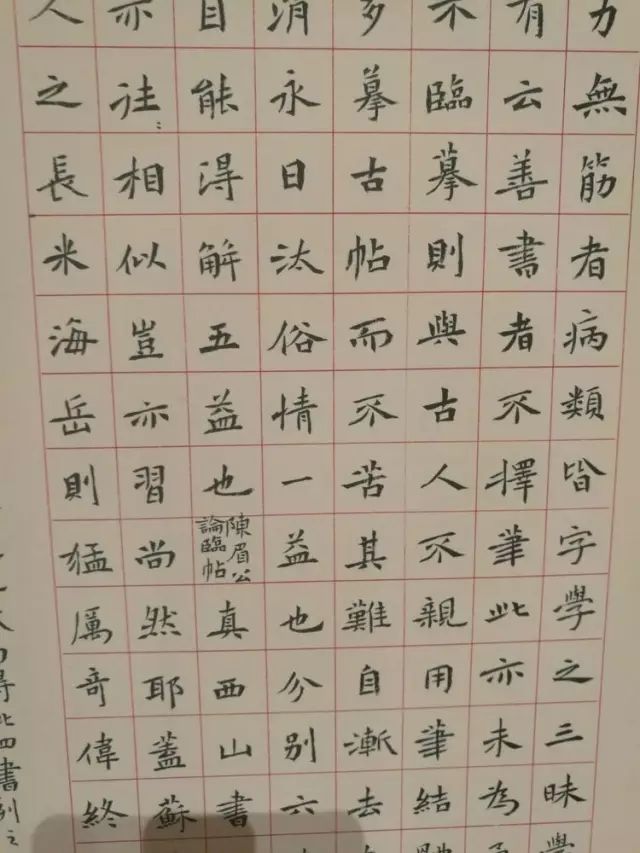 力無筋者病類皆字學之三昧學
有云善書者不擇筆此亦未為
不臨摹則與古人不親用筆結
多摹古帖而不苦其難自漸去
消永日汰俗情一益也分別六
自能得解五益也陳眉公論臨帖真西山書
亦往〻相似豈亦習尚然耶蓋蘇
人之長米海岳則猛厲奇偉終
得此四書刻之